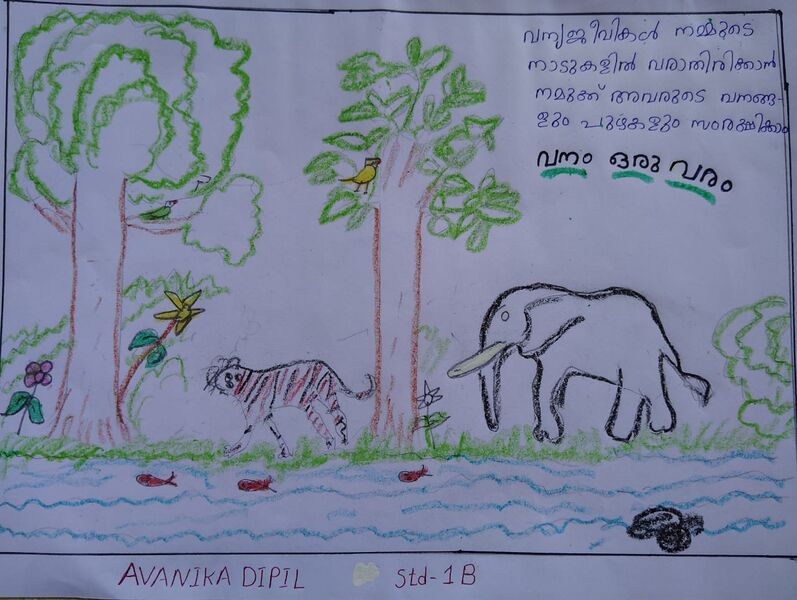 വന്യജീവികൾ നമ്മുടെ
നാടുകളിൽ വരാതിരിക്കാൻ
നമുക്ക് അവരുടെ വനങ്ങ-
ളും പുഴകളും സംരക്ഷിക്കാം
വനം ഒരു വരം
AVANIKA DIPIL Std-1B